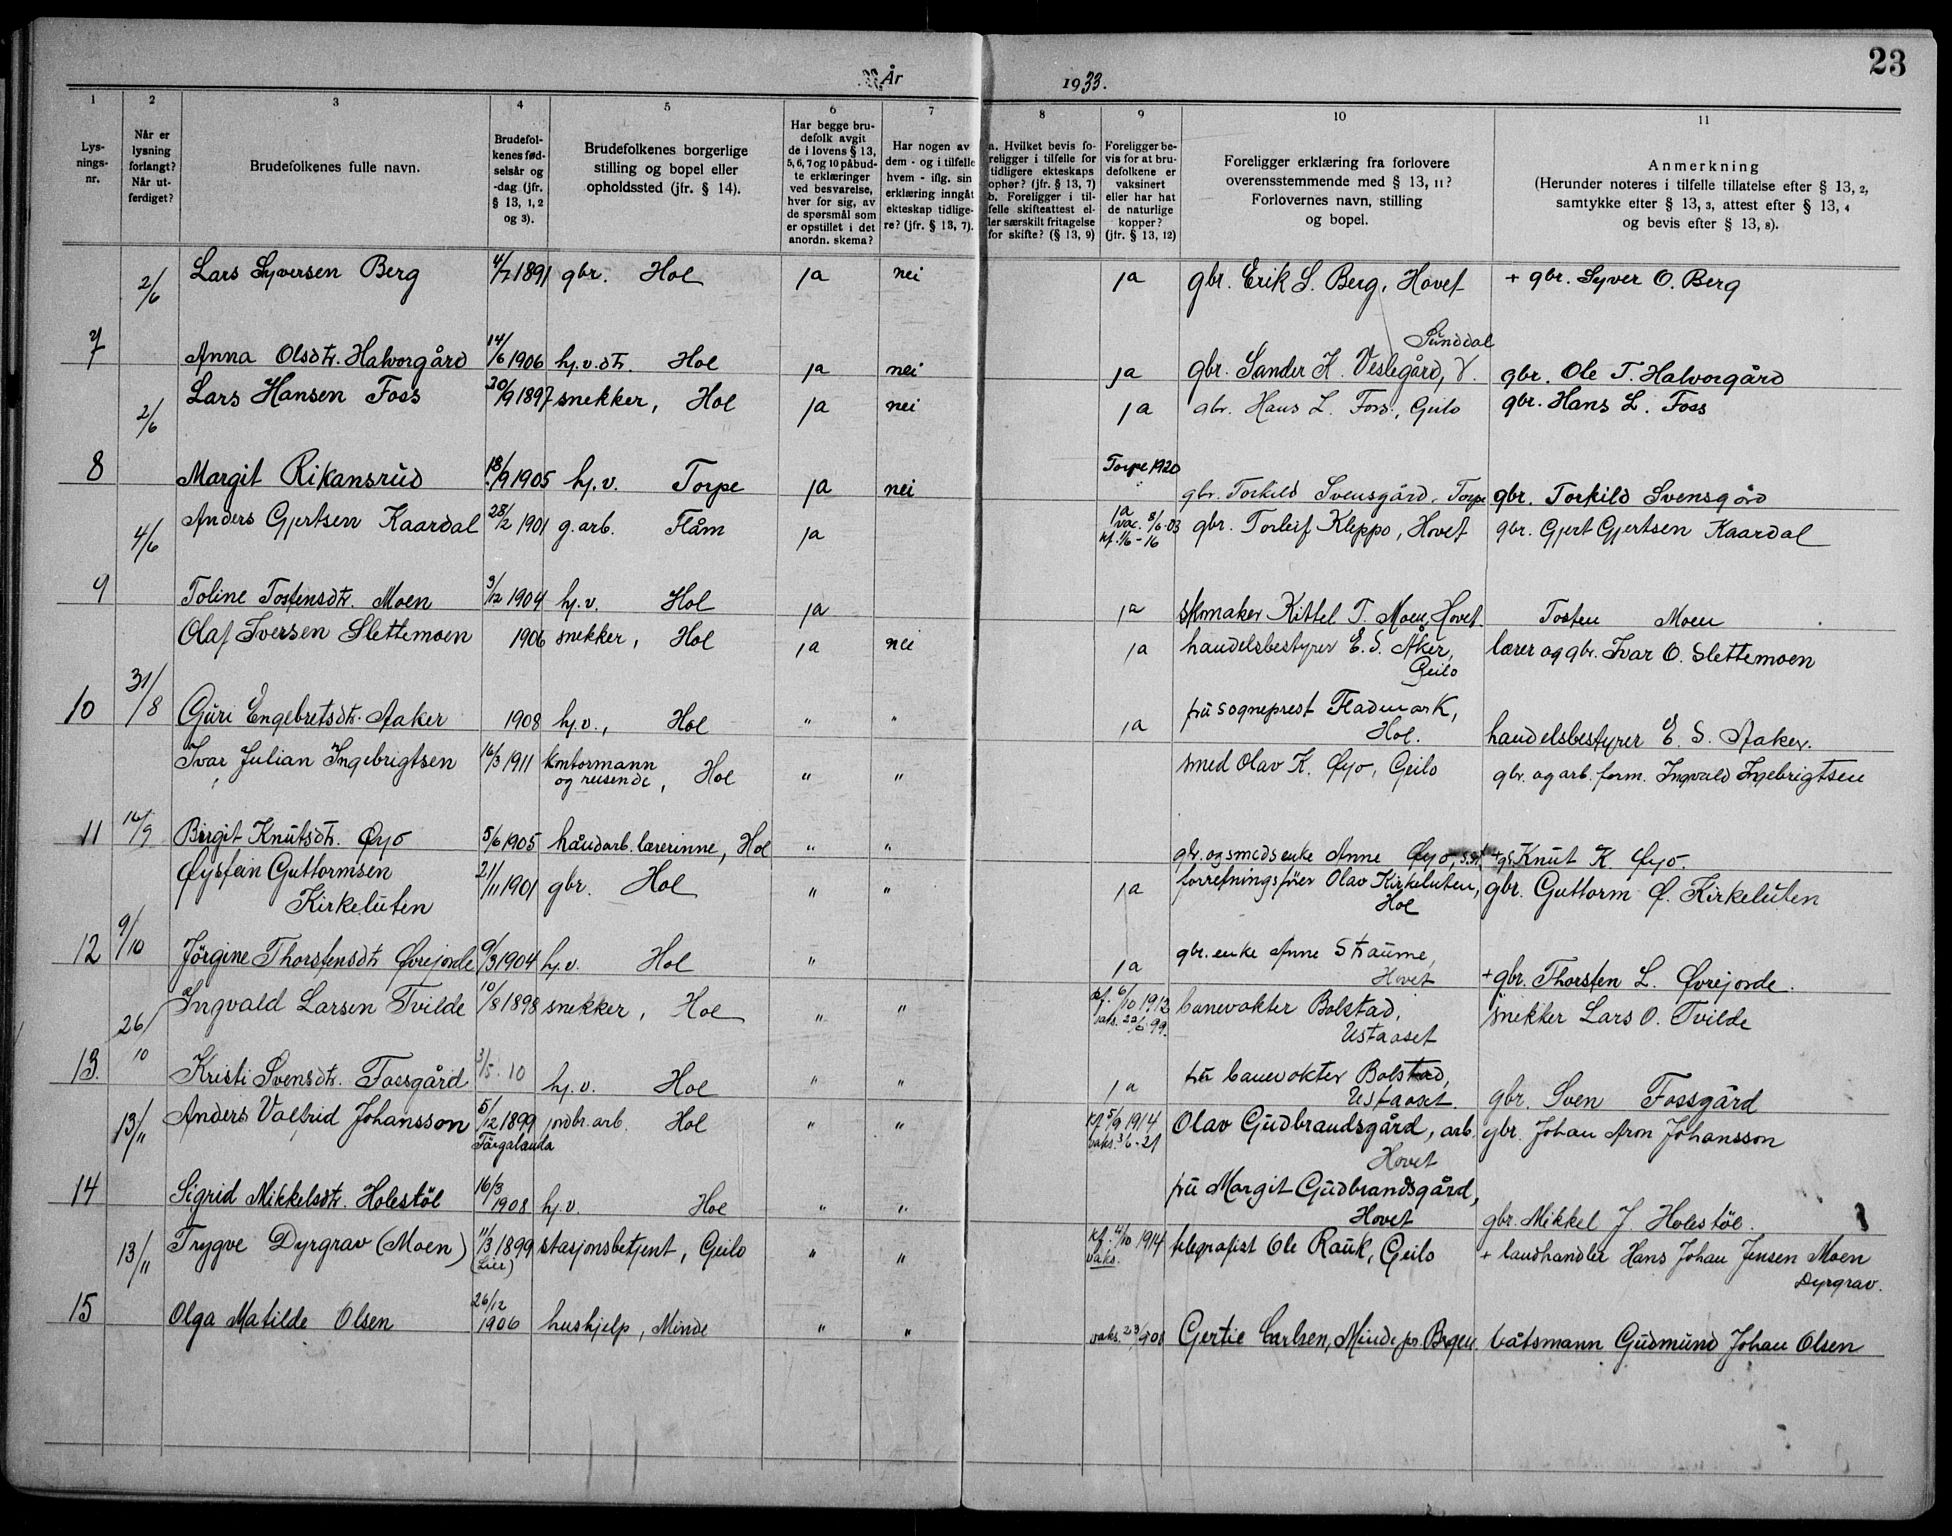 23
År 1933.
1 2 3 4 5 6 7 8 9 10 11
Lys-
nings-
nr.
Når er
lysning
forlangt?
Når ut-
ferdiget?
Brudefolkenes fulle navn.
Brudefol-
kenes fød-
selsår og
-dag (jfr.
§ 13, 1, 2
og 3).
Brudefolkenes borgerlige
stilling og bopel eller
opholdssted (jfr. § 14).
Har begge bru-
defolk avgit
de i lovens § 13,
5, 6, 7 og 10 påbud-
te erklæringer
ved besvarelse,
hver for sig, av
de spørsmål som
er opstillet i det
anordn. skema?
Har nogen av
dem - og i tilfelle
hvem - iflg. sin
erklæring inngått
ekteskap tidlige-
re? (jfr. § 13, 7).
a. Hvilket bevis fo-
religger i tilfelle for
tidligere ekteskaps
ophør? (jfr. § 13, 7)
b. Foreligger i til-
felle skifteattest el-
ler særskilt fritagelse
for skifte? (§ 13, 9)
Foreligger be-
vis for at bru-
defolkene er
vaksinert
eller har hat
de naturlige
kopper?
(jfr. § 13, 12)
Foreligger erklæring fra forlovere
overensstemmende med § 13, 11?
Forlovernes navn, stilling
og bopel.
Anmerkning
(Herunder noteres i tilfelle tillatelse efter § 13, 2,
samtykke efter § 13, 3, attest efter § 13, 4
og bevis efter § 13, 8).
2/6 Lars Syversen Berg 4/7 1891 gbr. Hol ja nei ja gbr. Erik S. Berg, Hovet + gbr. Syver O. Berg
Sunddal
7 Anna Olsdtr. Halvorgård 14/6 1906 hj.v.dtr. Hol ja nei ja gbr. Sander K. Veslegård, gbr. Ole T. Halvorgård
2/6 Lars Hansen Foss 30/9 1897 snekker, Hol ja nei ja gbr. Hans L. Foss, Geilo gbr. Hans L. Foss
8 Margit Rikansrud 18/9 1905 hj.v. Torpe ja nei Torpe 1920 gbr. Torkild Svensgård, Torpe gbr. Torkild Svensgård
4/6 Anders Gjertsen Kaardal 28/2 1901 g.arb. Flåm ja ja vac. 8/6-03 gbr. Torleif Kleppo, Hovet gbr. Gjert Gjertsen Kaardal
kf. 1/6-16
9 Toline Tostensdtr. Moen 3/12 1904 hj.v. Hol ja ja skomaker Kittel T. Moen, Hovet. Tosten Moen
Olaf Iversen Slettemoen 1906 snekker, Hol ja nei ja handelsbestyrer E. S. Åker, lærer og gbr. Ivar O. Slettemoen
Geilo
10 31/8 Guri Engebretsdtr. Aaker 1908 hj.v., Hol " " ja fru sogneprest Fladmark, handelsbestyrer E. S. Aaker.
Hol.
Ivar Julian Ingebrigtsen 16/3 1911 kontormann " " smed Olav K. Øyo, Geilo gbr. og arb. form. Ingvald Ingebrigtsen
og reisende, Hol
11 16/9 Birgit Knutsdtr. Øyo 5/6 1905 håndarb. lærerinne, Hol " " gbr. og smeds enke Anne Øyo, s.st. + gbr. Knut K Øyo.
Øystein Guttormsen 21/11 1901 gbr. Hol " " ja forretningsfører Olav Kirkeluten, gbr. Guttorm Ø. Kirkeluten
Kirkeluten Hol
12 9/10 Jörgine Thorstensdtr Øvrejorde 9/3 1904 hj.v. Hol " ja gbr. enke Anne Straume, + gbr. Thorsten L. Øvrejorde.
Hovet
Ingvald Larsen Tvilde 10/8 1898 snekker, Hol " " kf. 6/10 1912 banevokter Bolstad, snekker Lars O. Tvilde
vaks. 22/6 99. Ustaoset
13. 26/10 Kristi Svensdtr. Fossgård 31/5-10 hj.v. Hol " " ja fru banevokter Bolstad, gbr. Sven Fossgård
Ustaoset.
13/11 Anders Valfrid Johansson 5/12 1899 jordbr. arb. Hol " " kf 5/9 1914 Olav Gudbrandsgård, arb. gbr. Johan Aron Johansson
Färgelanda vaks. 3/6-21 Hovet
14 Sigrid Mikkelsdtr. Holestöl 16/3 1908 hj.v. Hol " " fru Margit Gudbrandsgård, gbr. Mikkel J Holestöl.
Hovet
13/11 Trygve Dyrgrav (Moen) 11/3 1899 stasjonsbetjent, Geilo " " kf. 4/10 1914 telegrafist Ole Rauk, Geilo + landhandler Hans Johan Jensen Moen
(Lier) vaks. Dyrgrav.
15 Olga Matilde Olsen 26/12 1906 hushjelp, Minde " " vaks. Gertie Carlsen, Minde pr. Bergen. båtsmann Gudmund Johan Olsen